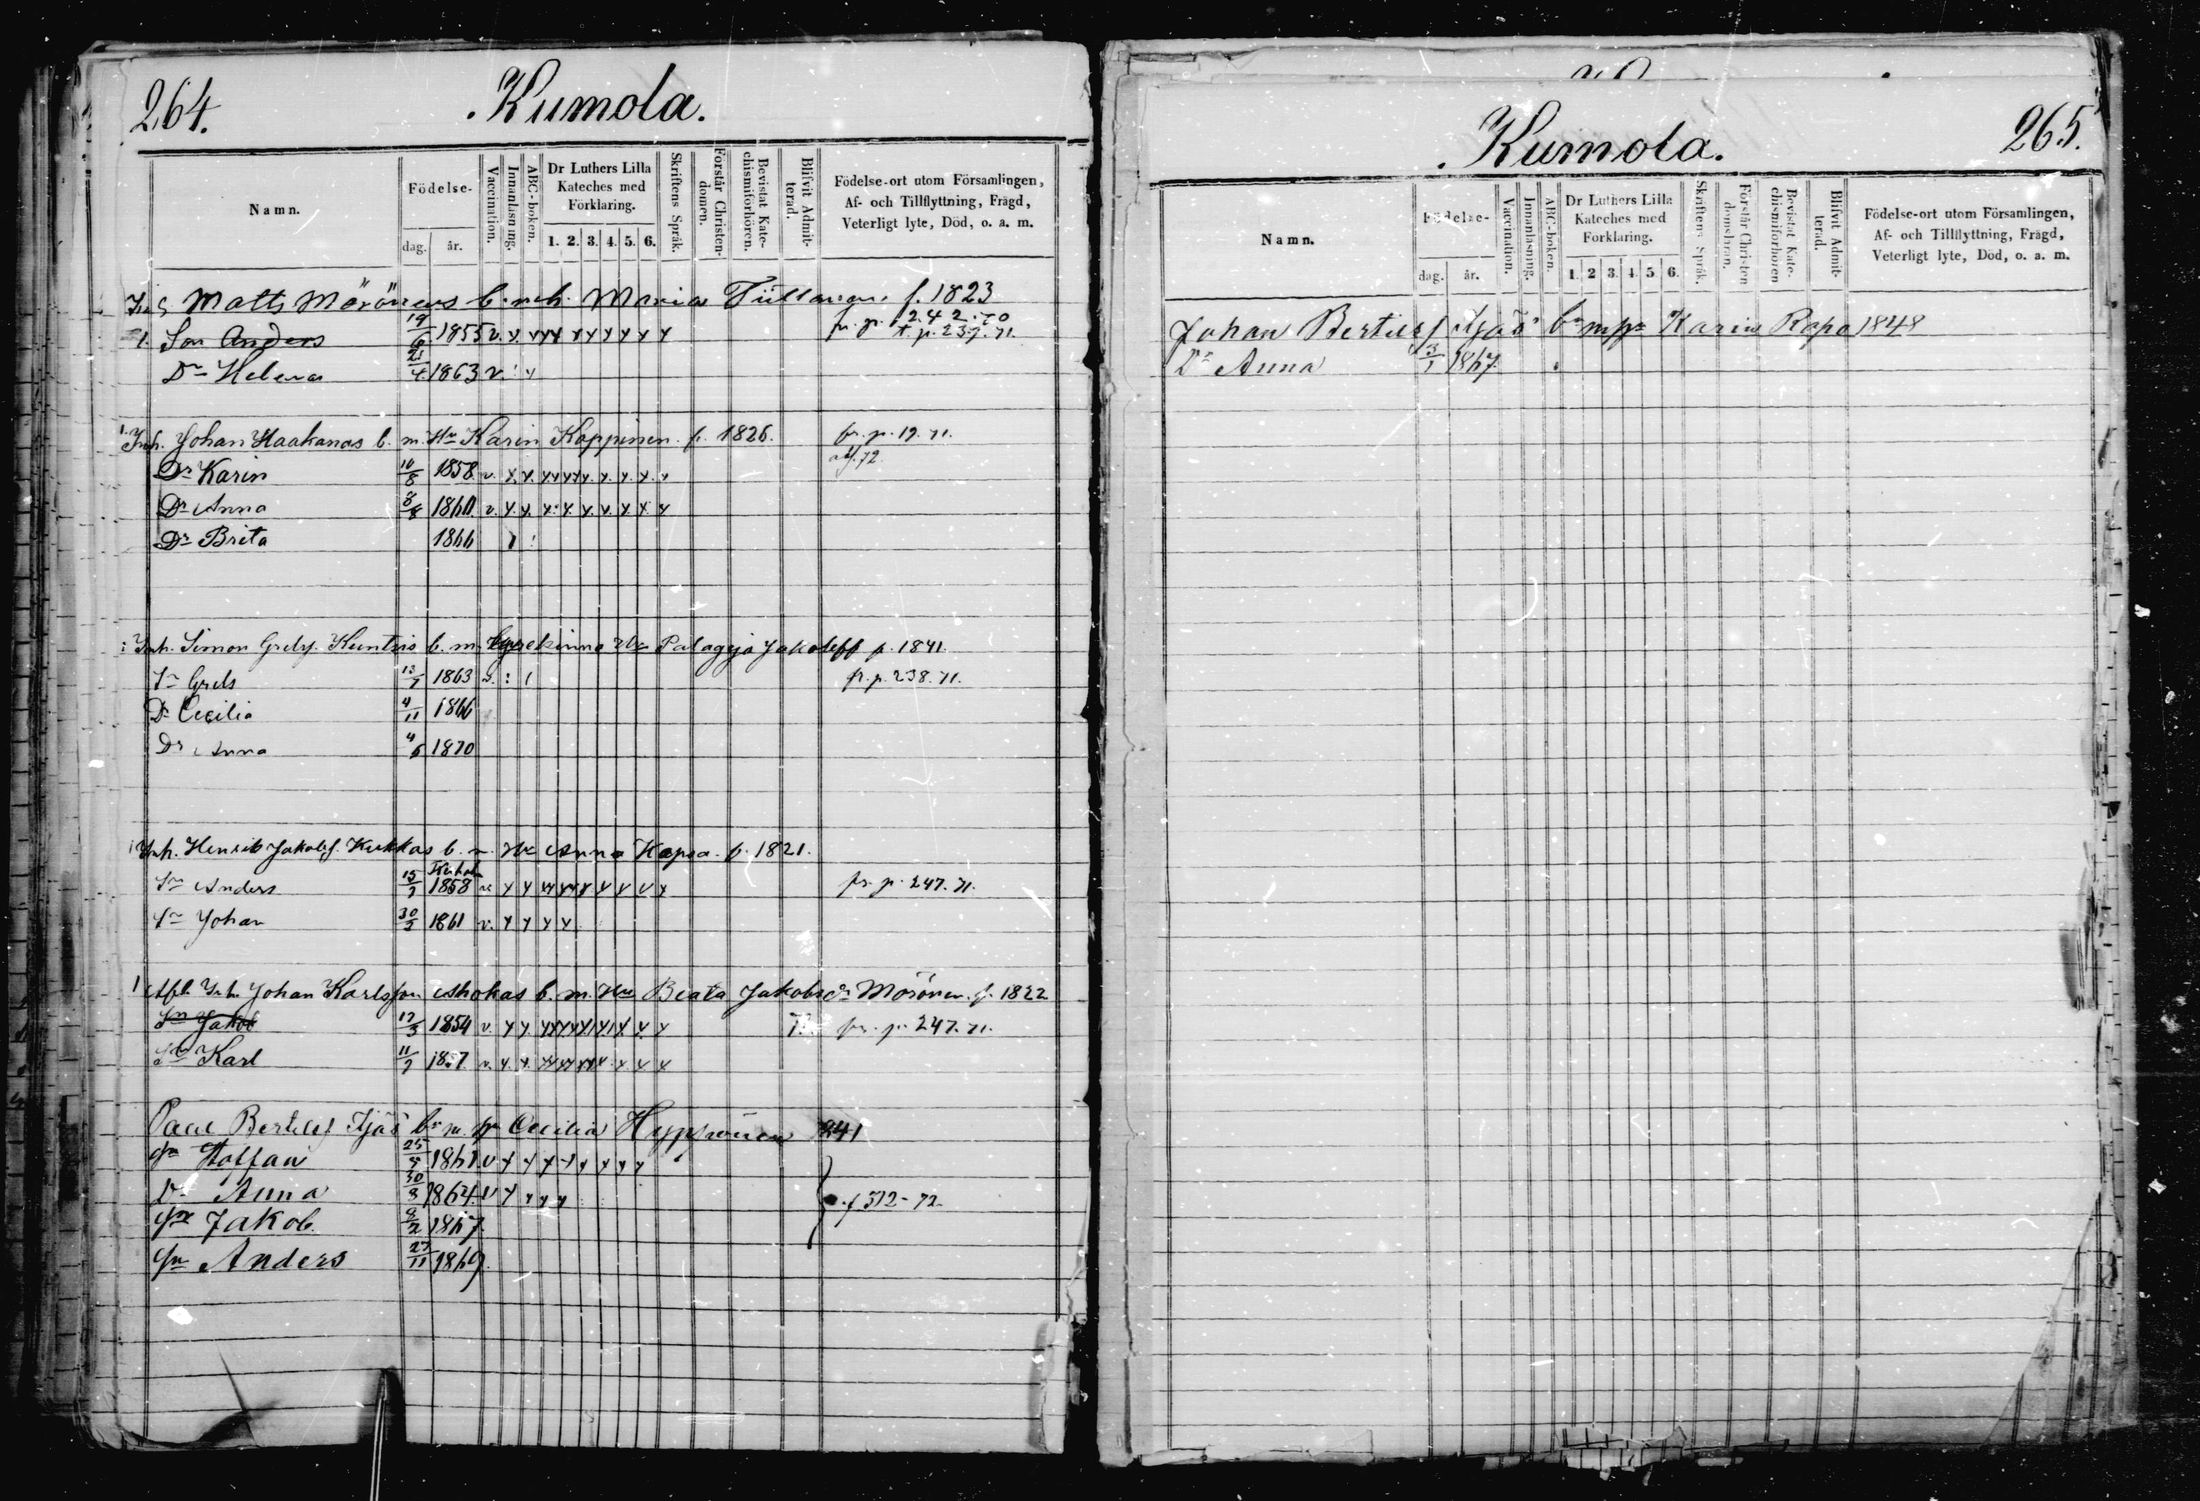 264. Kumola.
Namn.
Födelse-
dag. år.
Vaccination.
Innanläsning.
ABC-boken.
Dr Luthers Lilla
Kateches med
Förklaring.
1. 2. 3. 4. 5. 6.
Skriftens Språk.
Förstår Christen-
domen.
Bevistat Kate-
chismiförhören.
Blifvit Admit-
terad.
Födelse-ort utom Församlingen,
Af- och Tillflyttning, Frägd,
Veterligt lyte, Död, o. a. m.
Matts Mörönens b. m. h. Maria f. 1823
1. Son Anders 19/6 1855 v. fr. p. 242.70
t. p. 237.71.
Dr Helena 21/4 1863 v.
Inh. Johan Haakanas b. m. Hu Karin Koppinen. f. 1826. fr. p. 19.71.
Dr Karin 10/8 1858 v. afl. 72.
Dr Anna 8/8 1860 v.
Dr Brita 1866
Inh. Simon Grelsf. b. m. Palagejo Jakoleff f. 1841.
Sn Grels 13/7 1863 v. fr. p. 238.71.
Dr Cecilia 4/11 1866
Dr Anna 4/6 1870
Inh. Henrik Jakobsf. Kukkas b. m. Hu Anna Kapsa. f. 1821.
Sn Anders 15/7 1858 fr. p. 247.71.
Sn Johan 30/5 1861 v.
1 Afl. Inh. Johan Karlsson b. m. Hu Beata Jakobsdr Mörönen. f. 1822
Sn Jakob 17/3 1854 v. fr. p. 247.71.
Sn Karl 11/7 1857 v.
Paul Bertilsf Äjäs bn m. hu Cecilia 841
Sn Staffan 25/8 1861 v
Dr Anna 30/8 1864 v f 312-72.
Sn Jakob. 8/2 1867.
Sn Anders 27/11 1869.
Kumola. 265.
Namn.
Födelse-
dag. år.
Vaccination.
Innanläsning.
ABC-boken.
Dr Luthers Lilla
Kateches med
Förklaring.
1. 2 3. 4. 5. 6.
Skriftens Språk.
Förstår Christen
domsläran.
Bevistat Kate-
chismiförhören
Blifvit Admit-
terad.
Födelse-ort utom Församlingen,
Af- och Tillflyttning, Frägd,
Veterligt lyte, Död, o. a. m.
Johan Bertilsf Äjäs bn m hu Karin Rapo 1848
Dr Anna 3/1 1867.